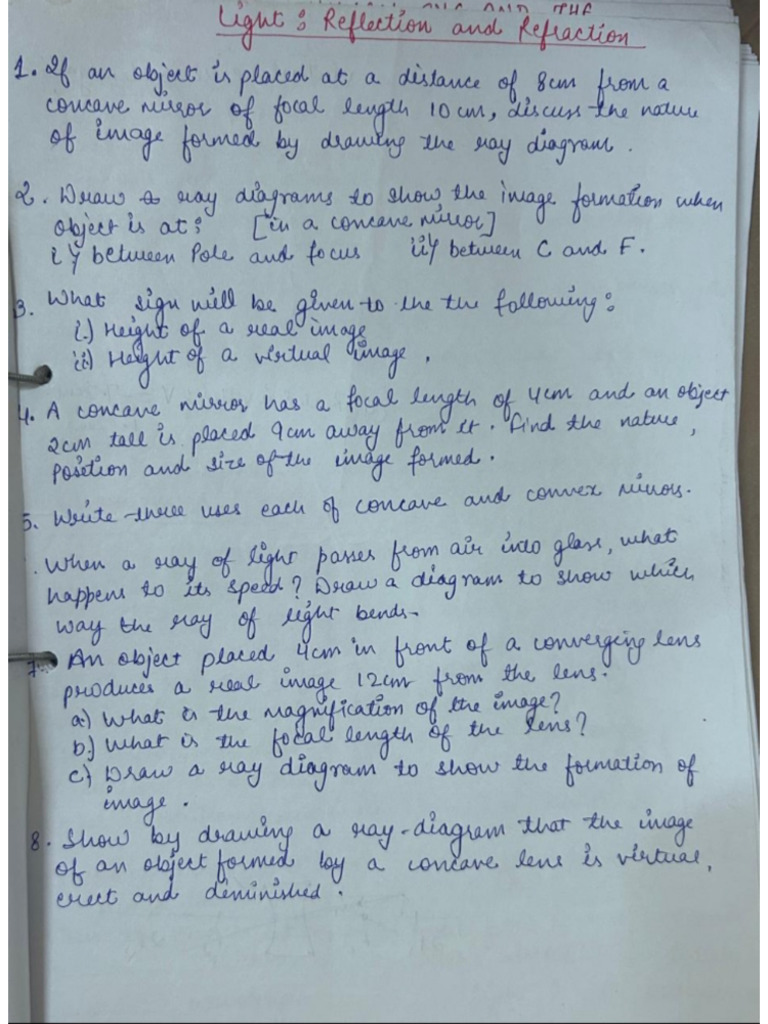 Light : Reflection and Refraction
1. If an object is placed at a distance of 8cm from a
concave mirror of focal length 10cm, discuss the nature
of image formed by drawing the ray diagram.
2. Draw ray diagrams to show the image formation when
object is at : [in a concave mirror]
i) between Pole and focus ii) between C and F.
3. What sign will be given to the the following :
(i.) Height of a real image
(ii) Height of a virtual image.
4. A concave mirror has a focal length of 4cm and an object
2cm tall is placed 9cm away from it. Find the nature,
position and size of the image formed.
5. Write three uses each of concave and convex mirrors.
. When a ray of light passes from air into glass, what
happens to its speed? Draw a diagram to show which
way the ray of light bends-
7. An object placed 4cm in front of a converging lens
produces a real image 12cm from the lens.
a) What is the magnification of the image?
b.) What is the focal length of the lens?
c) Draw a ray diagram to show the formation of
image.
8. Show by drawing a ray-diagram that the image
of an object formed by a concave lens is virtual,
erect and diminished.